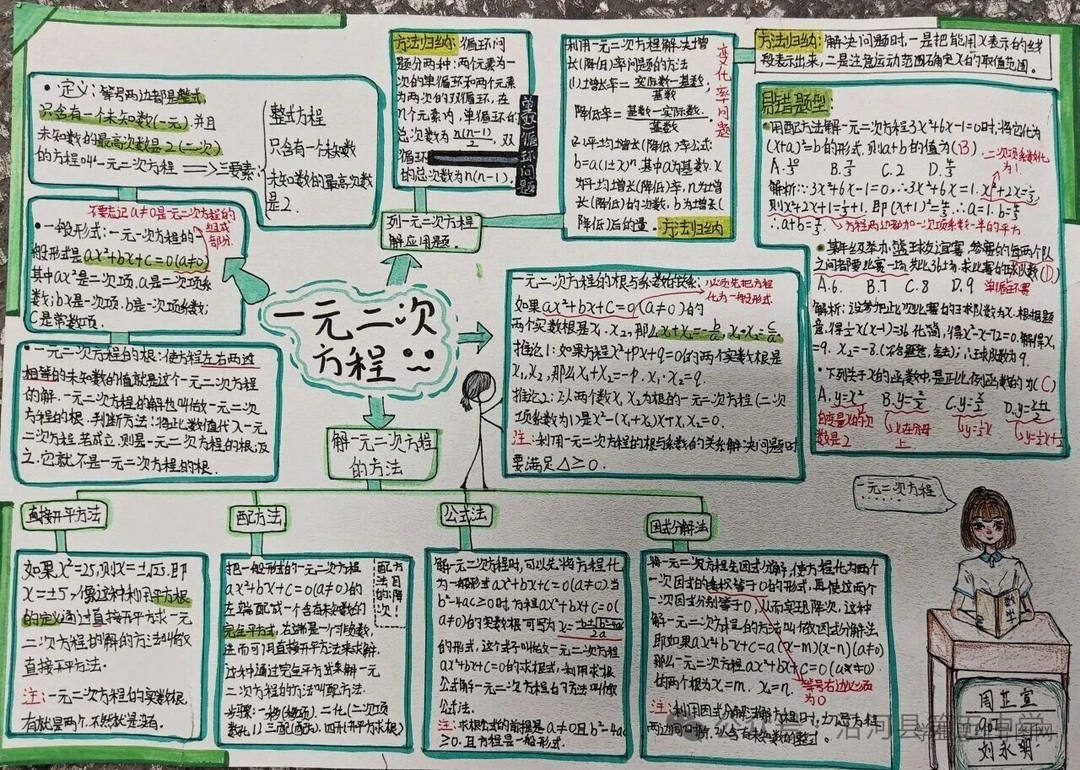 一元二次
方程
• 定义:等号两边都是整式,
只含有一个未知数(一元),并且
未知数的最高次数是2(二次)
的方程叫一元二次方程 => 三要素:
整式方程
只含有一个未知数
未知数的最高次数
是2.
不要忘记a≠0是一元二次方程的
组成
部分.
一般形式:一元二次方程的一
般形式是ax²+bx+c=0(a≠0)
其中ax²是二次项,a是二次项系
数;bx是一次项,b是一次项系数;
C是常数项.
• 一元二次方程的根:使方程左右两边
相等的未知数的值就是这个一元二次方程
的解.一元二次方程的解也叫做一元二次
方程的根.判断方法:将此数值代入一元
二次方程,若成立,则是一元二次方程的根;反
之,它就不是一元二次方程的根.
方法归纳:循环问
题分两种:两个元素为一
次的单循环和两个元素
为两次的双循环,在
n个元素内,单循环的
总次数为n(n-1)/2,双
循环
的总次数为n(n-1).
单(双)循环问题
列一元二次方程
解应用题.
利用一元二次方程解决增
长(降低)率问题的方法
(1)增长率=实际数-基数/基数,
降低率=基数-实际数/基数.
(2)平均增长(降低)率公式:
b=a(1±x)ⁿ.其中a为基数,x
为平均增长(降低)率,n为增
长(降低)的次数,b为增长(
降低)后的量.方法归纳
变化率问题
方法归纳:解决问题时,一是把能用X表示的线
段表示出来,二是注意运动范围确定X的取值范围.
易错题型:
•用配方法解一元二次方程3x²+6x-1=0时,将它化为
(x+a)²=b的形式,则a+b的值为(B)
二次项系数化
为1.
C.2
解析:∵3x²+6x-1=0,∴3x²+6x=1. x²+2x=1/3,
则x²+2x+1=1/3+1,即(x+1)²=4/3.∴a=1.b=4/3
∴a+b=7/3.
方程两边都加一次项系数一半的平方
• 某年级举办篮球友谊赛,参赛的每两个队
之间都要比赛一场,共比36场,求比赛的球队数(D)
A.6. B.7 C.8 D.9 单循环赛
=9. X₂=-8.(不合题意,舍去);∴球队数为9.
• 下列关于X的函数中,是正比例函数的为(C)
A.y=x²
数是2
一元二次方程的根与系数的关系:
必须先把方程
化为一般形式.
如果ax²+bx+c=0(a≠0)的
两个实数根是x₁,x₂,那么x₁+x₂=-b/a,x₁·x₂=c/a.
推论1:如果方程x²+px+q=0的两个实数根是
X₁,X₂,那么x₁+x₂=-p.x₁·x₂=q.
推论2:以两个数X₁X₂为根的一元二次方程(二次
项系数为1)是x²-(x₁+x₂)x+x₁x₂=0.
注:利用一元二次方程的根与系数的关系解决问题时
要满足△≥0.
解一元二次方程
的方法
直接开平方法
如果x²=25,则x=±√25.即
x=±5,像这种利用平方根
的定义通过直接开平方求一元
二次方程的解的方法叫做
直接开平方法.
注:一元二次方程的实数根
配方法
配方法目的:降次!
把一般形式的一元二次方程
ax²+bx+c=0(a≠0)的
左端配成一个含有未知数的
完全平方式,右端是一个非负数,
进而可用直接开平方法来求解.
这种通过完全平方式来解一元
二次方程的方法叫配方法.
公式法
解一元二次方程时,可以先将方程化
为一般形式ax²+bx+c=0(a≠0)当
b²-4ac≥0时,方程ax²+bx+c=0(
a≠0)的实数根可写为x=-b±√b²-4ac/2a
的形式,这个式子叫做一元二次方程
ax²+bx+c=0的求根式,利用求根
公式解一元二次方程的方法叫做
公式法.
注:求根式的前提是a≠0且b²-4ac
≥0.且方程是一般形式.
因式分解法
将一元二次方程先因式分解,使方程化为两个
一次因式的乘积等于0的形式,再使这两个
一次因式分别等于0,从而实现降次,这种
解一元二次方程的方法叫做因式分解法
即如果ax²+bx+c=a(x-m)(x-n)(a≠0)
那么一元二次方程ax²+bx+c=0(a≠0)
的两个根为x=m.x₂=n.
等号右边必须
为0
注:利用因式分解法解方程时,切忌方程
一元二次方程
......
数学
周芷萱
907
刘永明
公众号 沿河县第五中学